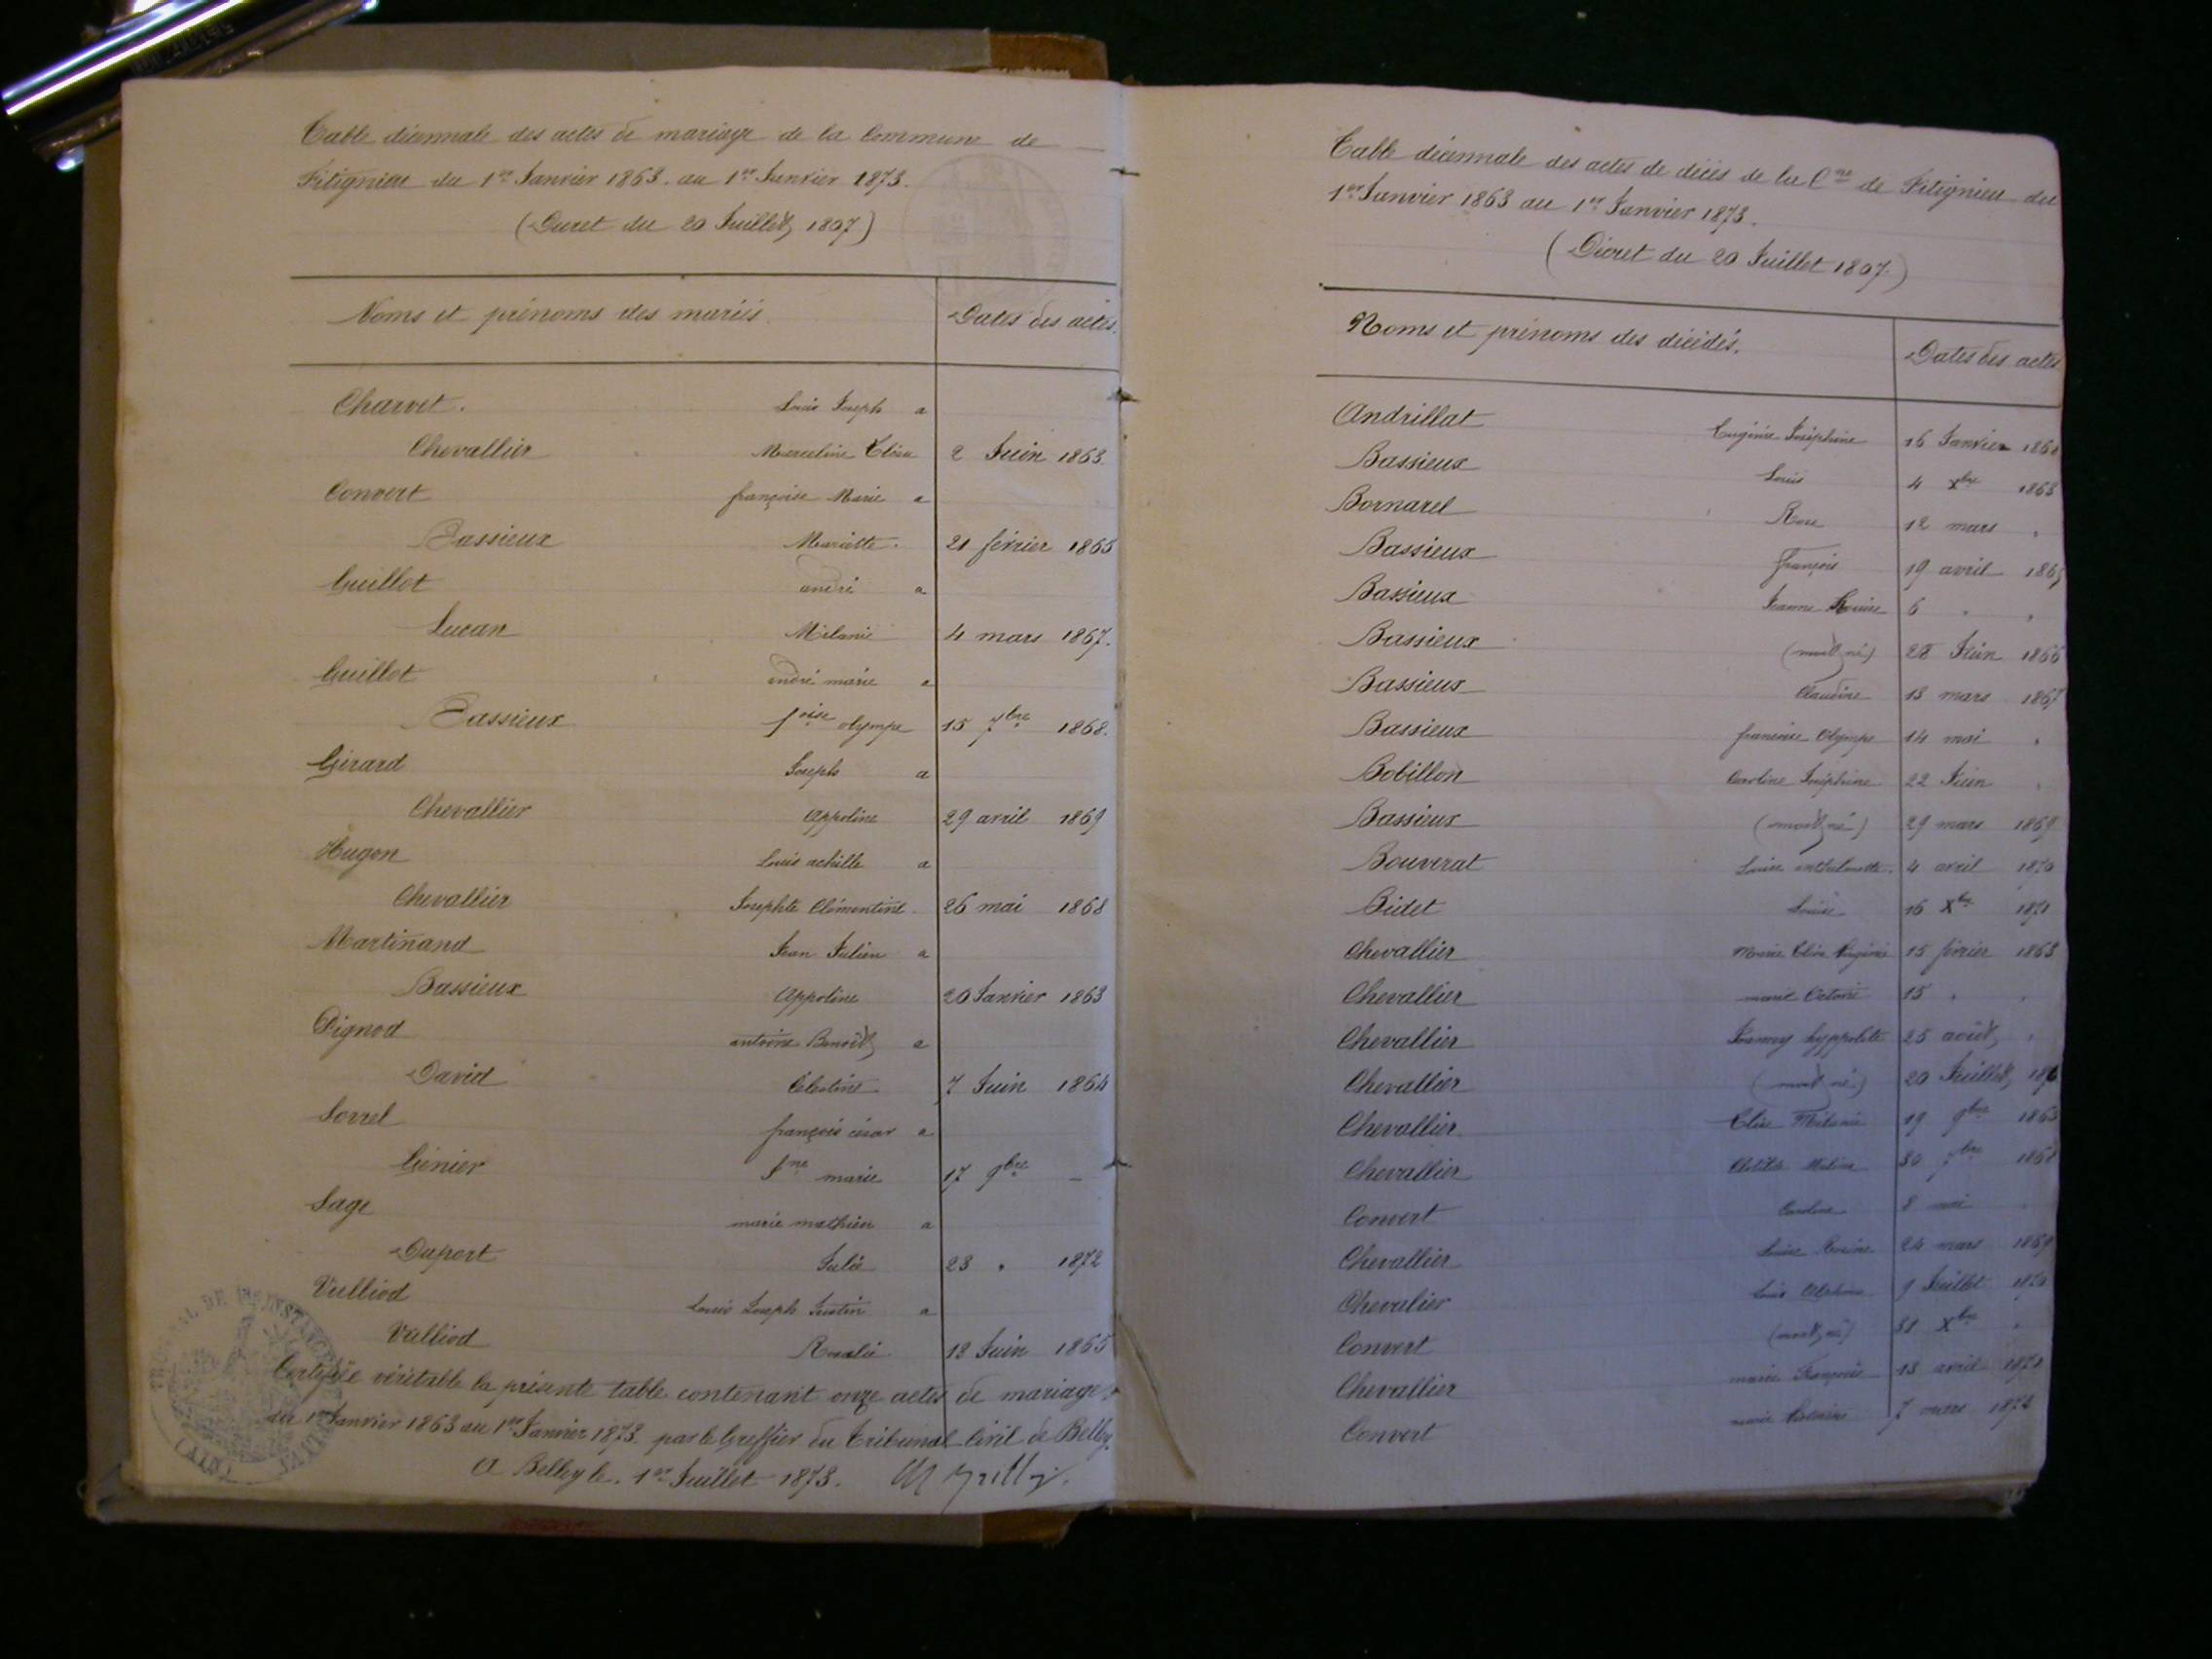 Table décennale des actes de mariage de la Commune de
Fitignieu du 1er Janvier 1863. au 1er Janvier 1873.
(Decret du 20 Juillet 1807)
Noms et prénoms des mariés. Dates des actes.
Charvet. Louis Joseph a
Chevallier Marceline 2 Juin 1863.
Convert françoise Marie a
Bassieux Mariette. 21 février 1865
Guillot andré a
Lucan Mélanie 4 mars 1867.
Guillot andré marie a
Bassieux foise olympe 15 7bre 1868.
Girard Joseph a
Chevallier Appoline 29 avril 1869
Hugon Louis achille a
Chevallier Josephte Clémentine 26 mai 1868
Martinand Jean Julien a
Bassieux Appoline 20 Janvier 1863
Pignod antoine Benoît a
David Célestine 7 Juin 1864
Sorrel françois césar a
Génier Jne marie 17 9bre -
Sage marie mathieu a
Duport Julie 23 " 1872
Vulliod Louis Joseph Justin a
Vulliod Rosalie 13 Juin 1865
Certifiée véritable la présente table contenant onze actes de mariage
du 1er Janvier 1863 au 1er Janvier 1873. par le Greffier du Tribunal Civil de Belley.
A Belley le. 1er Juillet 1873.
TRIBUNAL DE 1re INSTANCE DE BELLEY (AIN)
Table décennale des actes de décès de la Cne de Fitignieu du
1er Janvier 1863 au 1er Janvier 1873.
(Décret du 20 Juillet 1807.)
Noms et prénoms des décédés. Dates des actes
Andrillat Eugénie Joséphine 16 Janvier
Bassieux Louis 4 Xbre 1863
Bornarel Rose 12 mars "
Bassieux françois 19 avril
Bassieux Jeanne Louise 6 " "
Bassieux (mort né) 28 Juin 1866
Bassieux Claudine 13 mars 1867
Bassieux francoise Olympe 14 mai "
Bobillon Caroline Joséphine 22 Juin "
Bassieux (mort né) 29 mars 1869
Bouverat Louise anthelmette. 4 avril 1870
Bidet Louise 16 Xbre 1871
Chevallier Marie Virginie 15 février 1863
Chevallier marie 15 " "
Chevallier hyppolite 25 août "
Chevallier (mort né) 20 Juillet
Chevallier Mélanie 19 9bre 1863
Chevallier 30 7bre 1868
Convert Caroline 8 mai
Chevallier Louise 24 mars 1869
Chevalier Louis 9 Juillet 1870
Convert (mort né) 31 Xbre "
Chevallier marie Françoise 13 avril
Convert marie 7 mars 1872